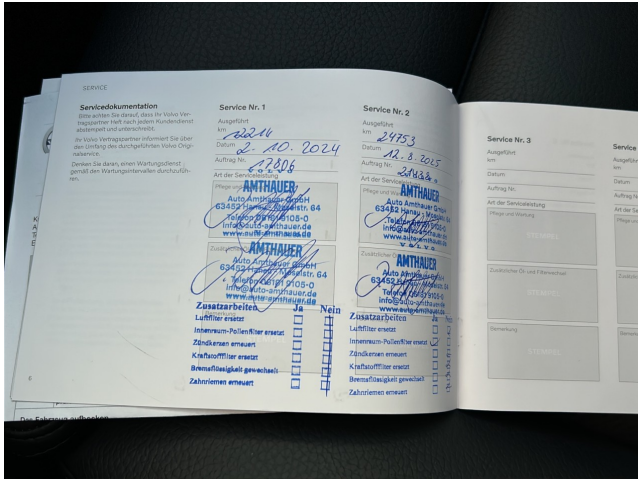 SERVICE
Servicedokumentation
Bitte achten Sie darauf, dass Ihr Volvo Ver-
tragspartner Heft nach jedem Kundendienst
abstempelt und unterschreibt.
Ihr Volvo Vertragspartner informiert Sie über
den Umfang des durchgeführten Volvo Origi-
nalservice.
Denken Sie daran, einen Wartungsdienst
gemäß den Wartungsintervallen durchzufüh-
ren.
6
Service Nr. 1
Ausgeführt
km
Datum 2. 10. 2024
Auftrag Nr. 17806
VOLVO
Art der Serviceleistung
Pflege und
AMTHAUER
Auto Amthauer GmbH
63452 Hanau · Moselstr. 64
Telefon 06181 9105-0
info@auto-amthauer.de
www.auto-amthauer.de
AMTHAUER
Auto Amthauer GmbH
63452 Hanau · Moselstr. 64
Telefon 06181 9105-0
info@auto-amthauer.de
www.auto-amthauer.de
Bemerkung
Zusatzarbeiten Ja Nein
Luftfilter ersetzt
Innenraum-Pollenfilter ersetzt
Zündkerzen erneuert
Kraftstofffilter ersetzt
Bremsflüssigkeit gewechselt
Zahnriemen erneuert
Service Nr. 2
Ausgeführt
km 24753
Datum 12. 8. 2025
Auftrag Nr.
Art der Serviceleistung
Pflege und
AMTHAUER
Auto Amthauer GmbH
63452 Hanau
Telefon 06181 9105-0
info@auto-amthauer.de
www.auto-amthauer.de
VOLVO
AMTHAUER
Auto Amthauer GmbH
63452 Hanau
Telefon 06181 9105-0
info@auto-amthauer.de
www.auto-amthauer.de
Zusatzarbeiten Ja
Luftfilter ersetzt
Innenraum-Pollenfilter ersetzt
Zündkerzen erneuert
Kraftstofffilter ersetzt
Bremsflüssigkeit gewechselt
Zahnriemen erneuert
Service Nr. 3
Ausgeführt
km
Datum
Auftrag Nr.
Art der Serviceleistung
Pflege und Wartung
STEMPEL
Zusätzlicher Öl- und Filterwechsel
STEMPEL
Bemerkung
STEMPEL
Service
Ausgeführt
km
Datum
Auftrag